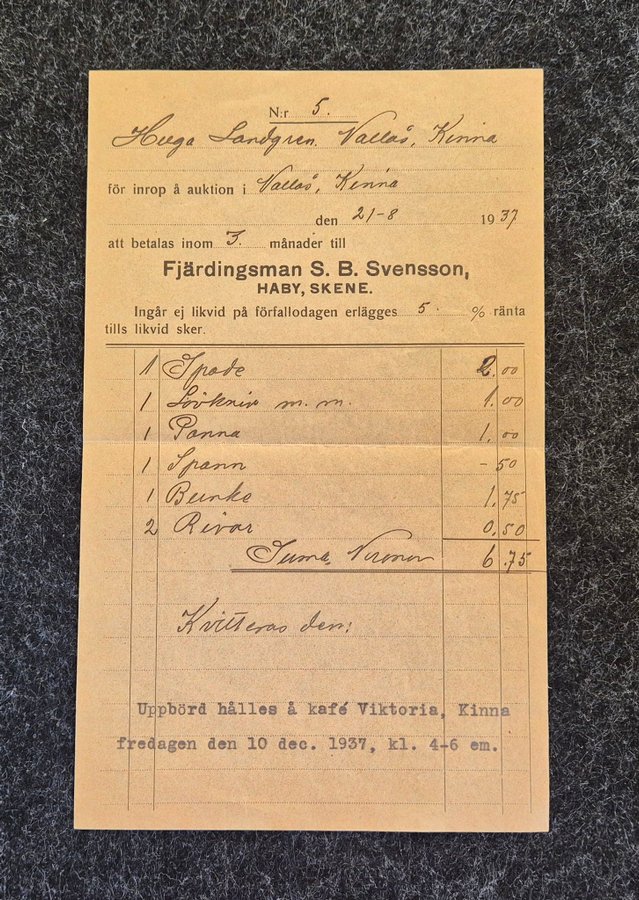 N:r 5.
Huga Landgren. Vallås, Kinna
för inrop å auktion i Vallås, Kinna
den 21-8 1937
att betalas inom 3. månader till
Fjärdingsman S. B. Svensson,
HABY, SKENE.
Ingår ej likvid på förfallodagen erlägges 5. % ränta
tills likvid sker.
1 Spade 2.00
1 Lövkniv m. m. 1.00
1 Panna 1.00
1 Spann - 50
1 Bunke 1.75
2 Rivor 0.50
Suma, Kronor 6.75
Kvitteras den:
Uppbörd hålles å kafé Viktoria, Kinna
fredagen den 10 dec. 1937, kl. 4-6 em.